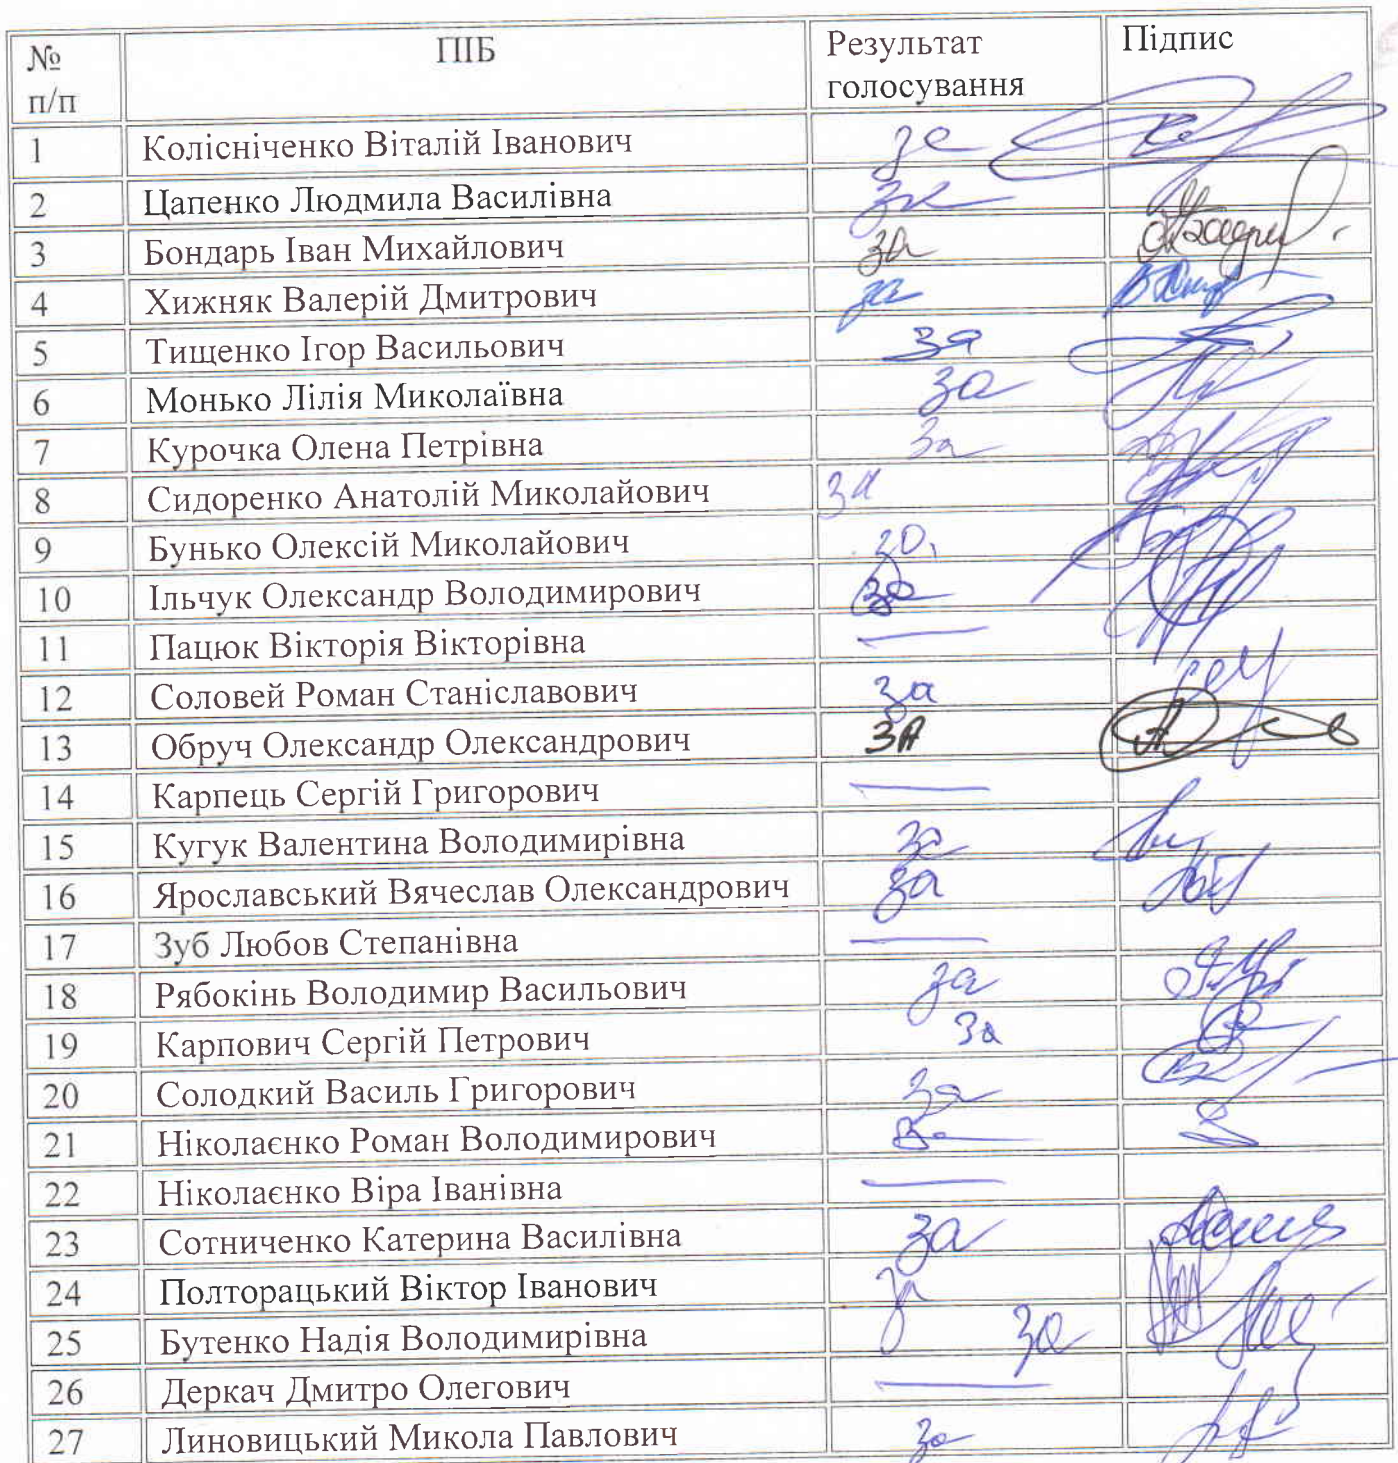 № п/п ПІБ Результат голосування Підпис
1 Колісніченко Віталій Іванович за
2 Цапенко Людмила Василівна за
3 Бондарь Іван Михайлович за
4 Хижняк Валерій Дмитрович за
5 Тищенко Ігор Васильович за
6 Монько Лілія Миколаївна за
7 Курочка Олена Петрівна за
8 Сидоренко Анатолій Миколайович за
9 Бунько Олексій Миколайович за
10 Ільчук Олександр Володимирович за
11 Пацюк Вікторія Вікторівна —
12 Соловей Роман Станіславович за
13 Обруч Олександр Олександрович ЗА
14 Карпець Сергій Григорович —
15 Кугук Валентина Володимирівна за
16 Ярославський Вячеслав Олександрович за
17 Зуб Любов Степанівна —
18 Рябокінь Володимир Васильович за
19 Карпович Сергій Петрович за
20 Солодкий Василь Григорович за
21 Ніколаєнко Роман Володимирович за
22 Ніколаєнко Віра Іванівна —
23 Сотниченко Катерина Василівна за
24 Полторацький Віктор Іванович за
25 Бутенко Надія Володимирівна за
26 Деркач Дмитро Олегович —
27 Линовицький Микола Павлович за